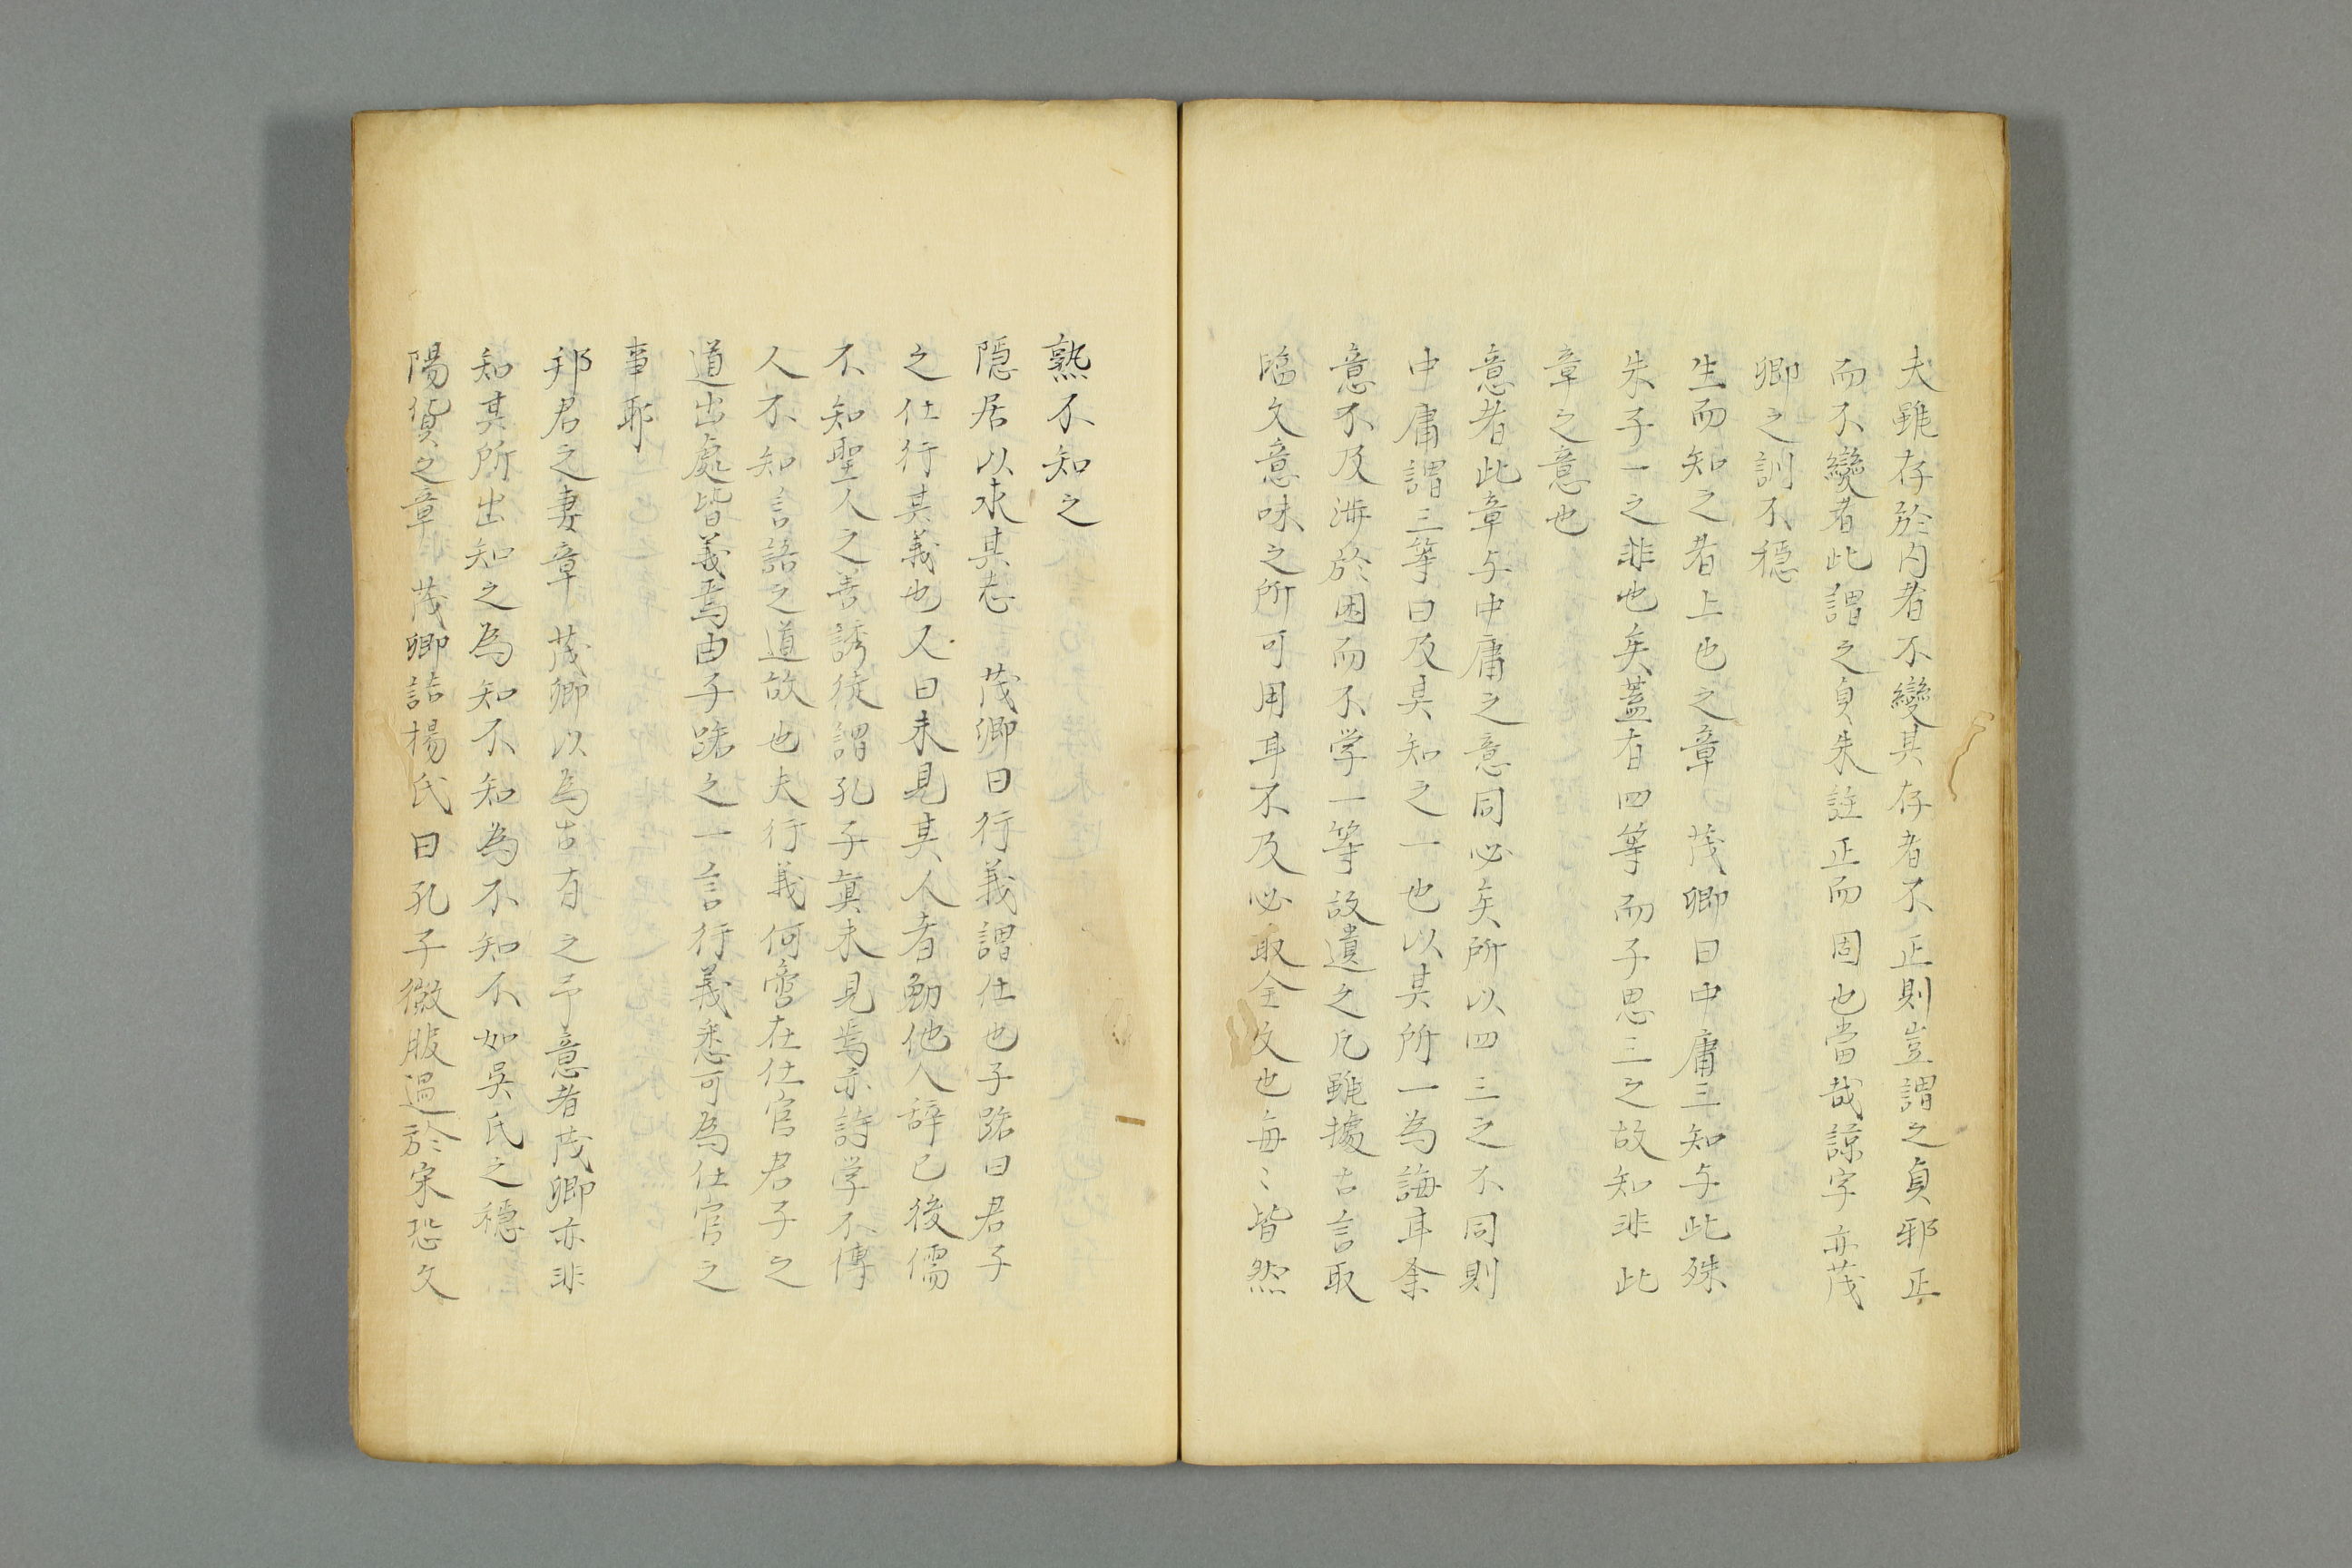 夫雖存於内者不變其存者不正則豈謂之貞邪正
而不變者此謂之貞朱註正而固也當哉諒字亦茂
卿之訓不穏
生而知之者上也之章 茂卿曰中庸三知与此殊
朱子一之非也矣蓋有四等而子思三之故知非此
章之意也
意者此章与中庸之意同必矣所以四三之不同則
中庸謂三等曰及其知之一也以其所一為誨耳余
意不及渉於困而不学一等故遺之凡雖據古言取
臨文意味之所可用耳不及必取全文也毎〻皆然
熟不知之
隠居以求其志 茂卿曰行義謂仕也子路曰君子
之仕行其義也又曰未見其人者勉他人辞已後儒
不知聖人之善誘徒謂孔子眞未見焉亦詩学不傳
人不知言語之道故也夫行義何啻在仕官君子之
道出處皆義焉由子路之一言行義悉可為仕官之
事耶
邦君之妻章 茂卿以為古有之予意者茂卿亦非
知其所出知之為知不知為不知不如吳氏之穏
陽貨之章 茂卿詰楊氏曰孔子微服過於宋恐久